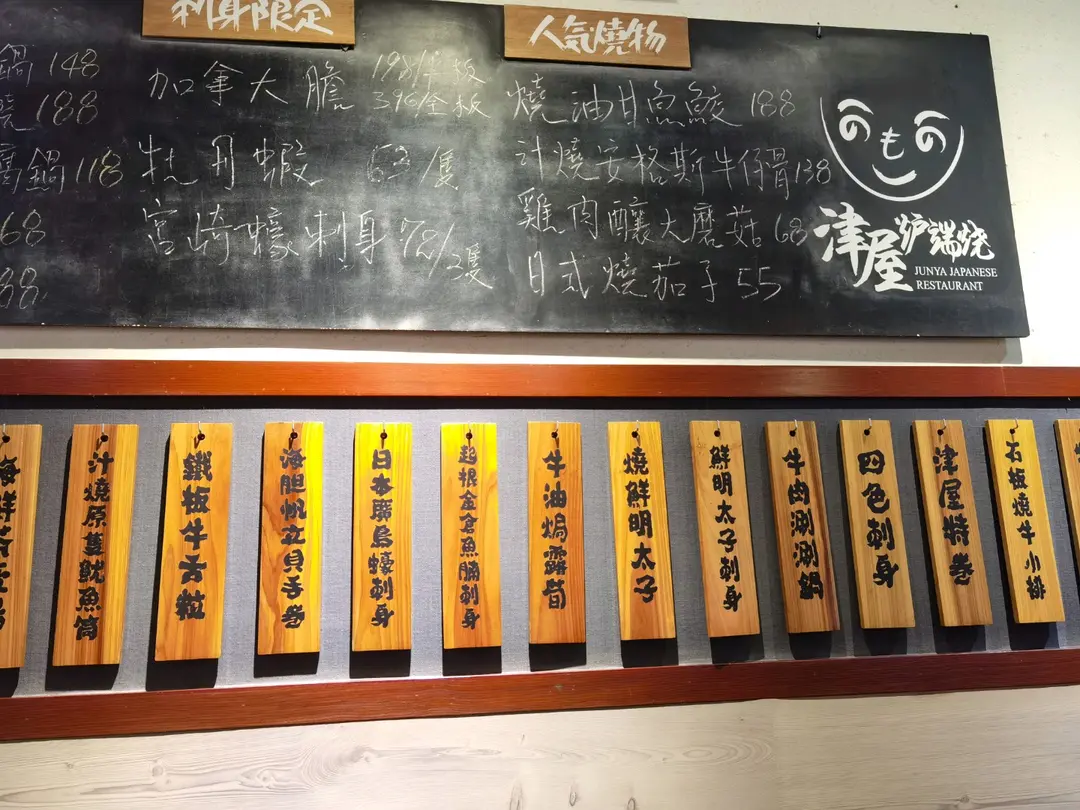 刺身限定
人気燒物
鍋 148
燒 188
鍋 118
68
88
加拿大膽 198/半板
396/全板
牡丹蝦 63/隻
宮崎蠔刺身 78/2隻
燒油甘魚鮫 188
汁燒安格斯牛仔骨 138
雞肉釀大磨菇 68
日式燒茄子 55
のものも
津屋炉端烧
JUNYA JAPANESE
RESTAURANT
海鮮
汁燒原隻魷魚筒
鐵板牛舌粒
海胆帆立貝手卷
日本廣島蠔刺身
起根金倉魚腩刺身
牛油焗露荀
燒鮮明太子
鮮明太子刺身
牛肉涮涮鍋
四色刺身
津屋特卷
石板燒牛小排